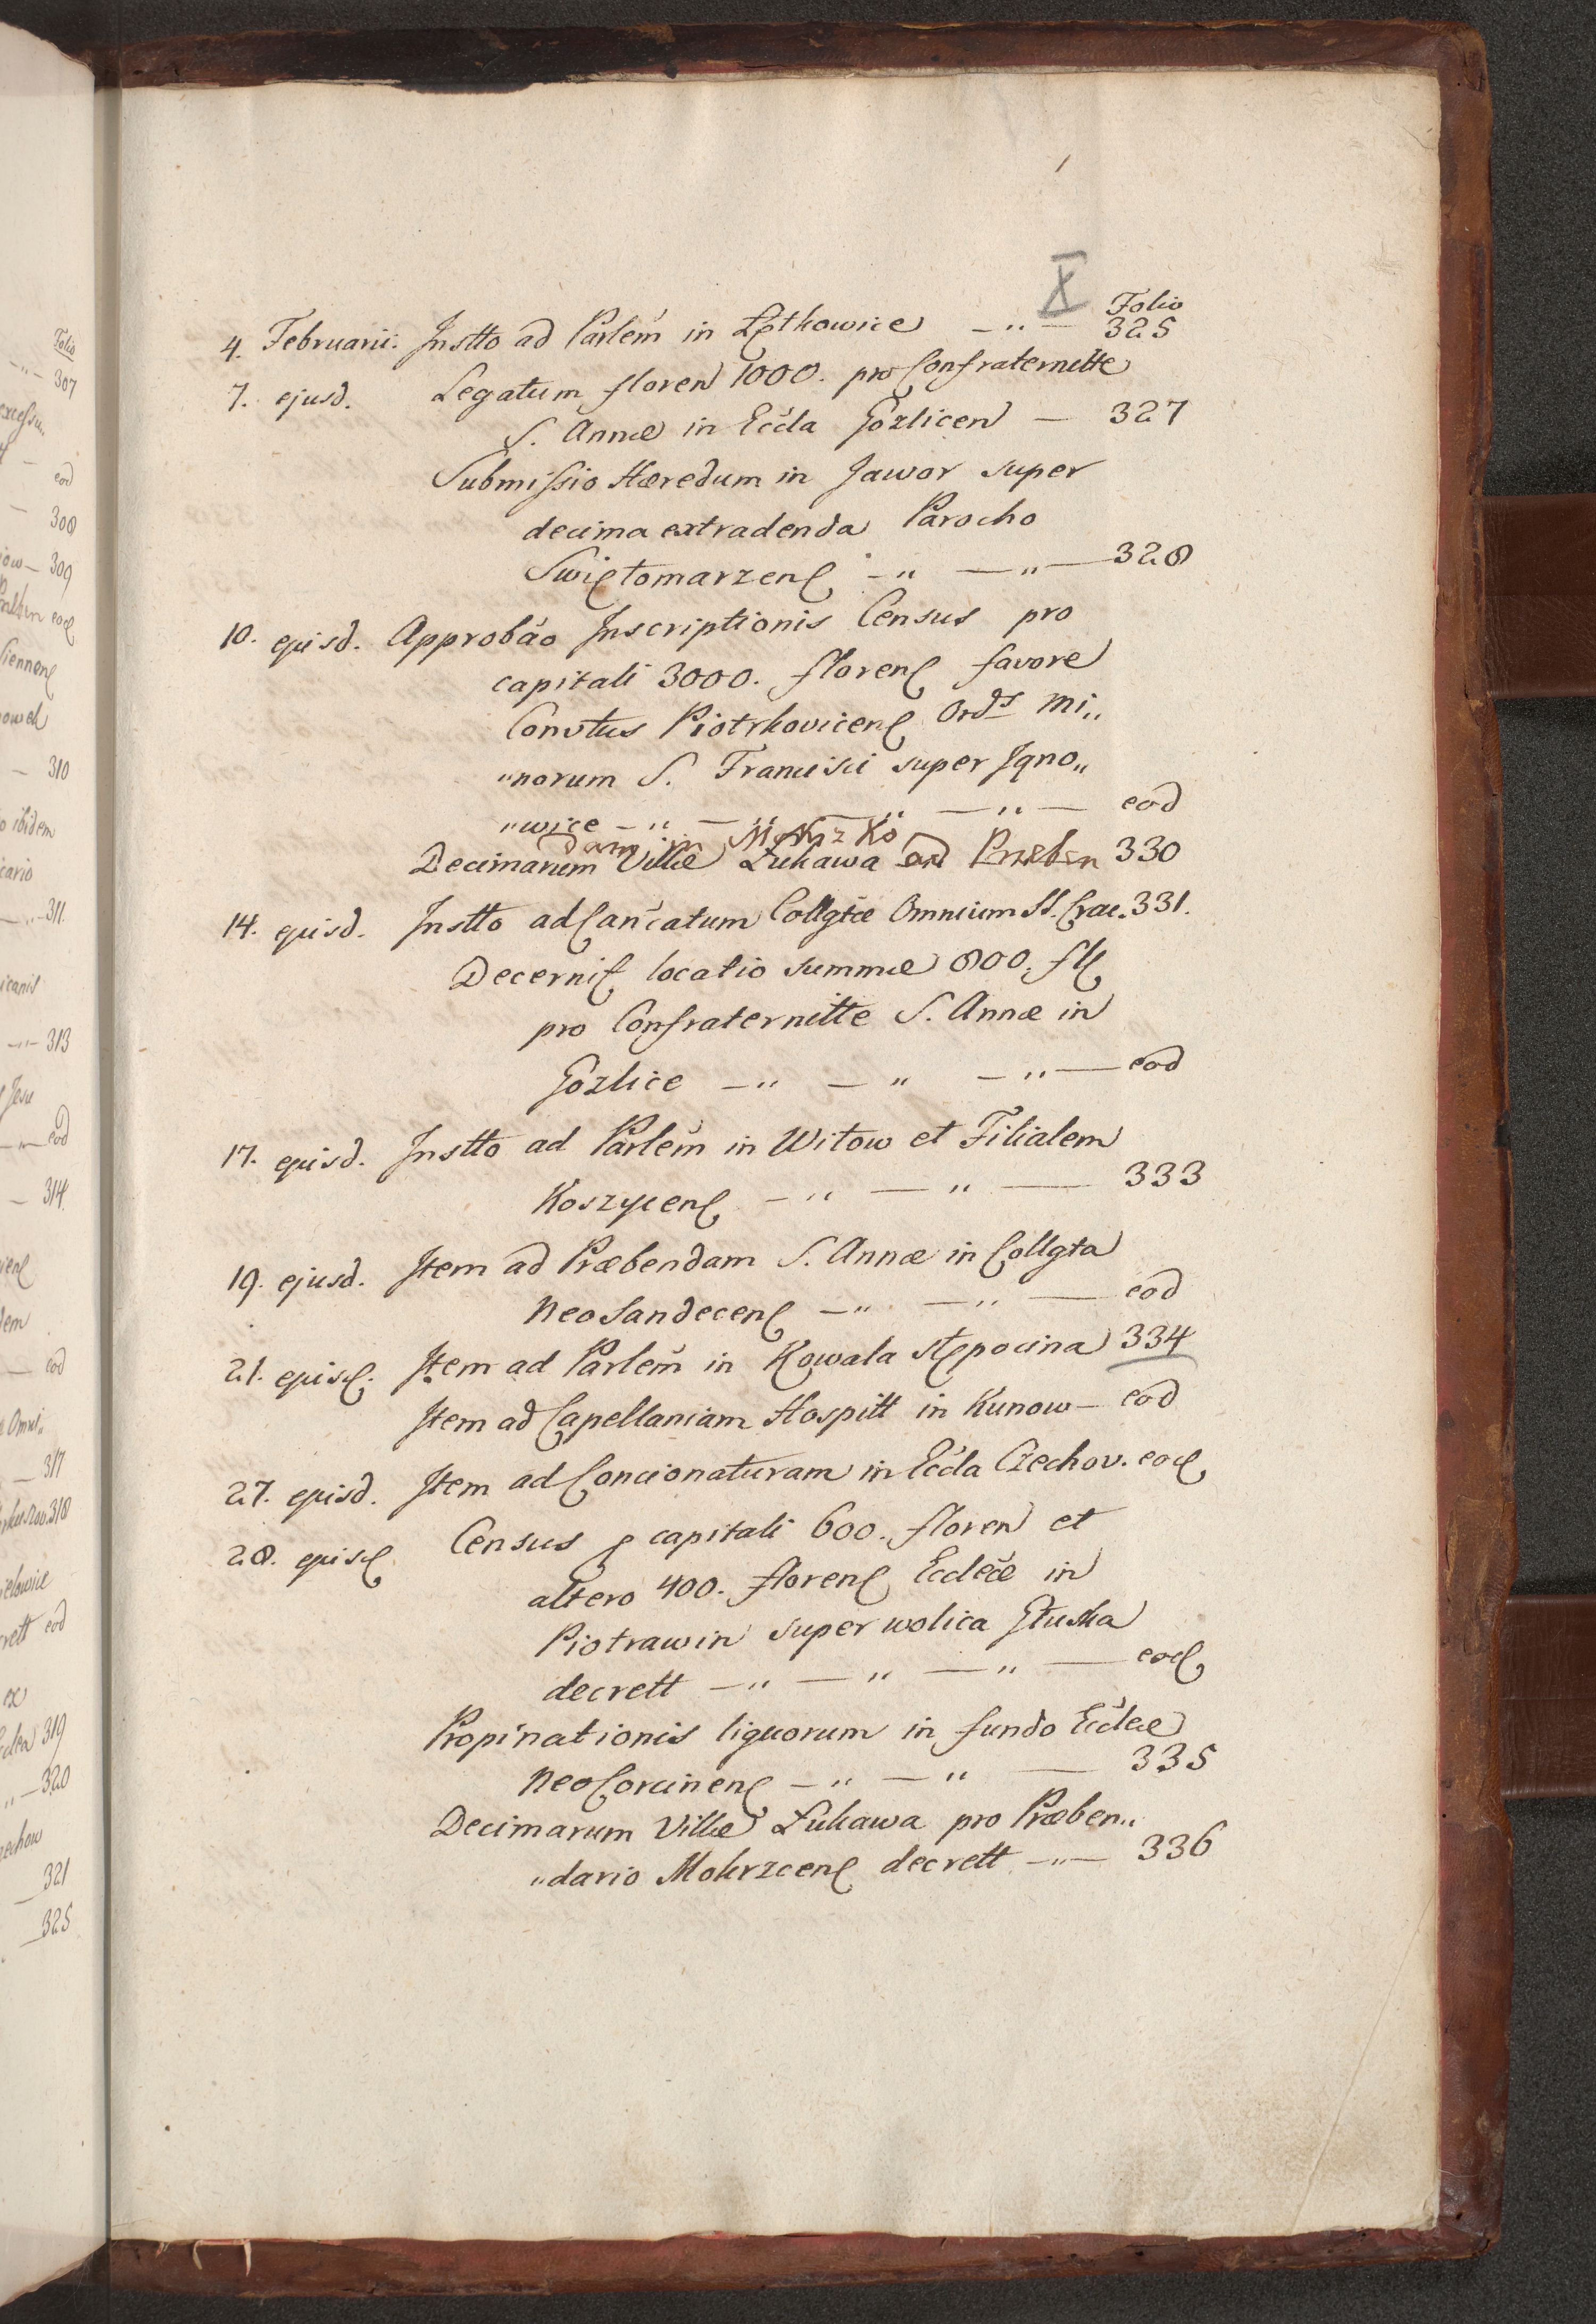 X
Folio
4. Februarii. Instto ad Parlem̃ in Łętkowice —„— 325
7. ejusd. Legatum floren 1000. pro Confraternitte
S. Annæ in Eccla Gozlicen — 327
Submissio Hæredum in Jawor super
decima extradenda Parocho
Swiętomarzen —„ —„— 328
10. ejusd. Approbão Inscriptionis Census pro
capitali 3000. floren favore
Convtus Piotrkovicen Ords Mi„
„norum S. Francisci super Jgno„
„wice —„ —„ —„ —„— eod
dam in Mokrzko
Decimarum Villæ Łukawa ad Præben 330
14. ejusd. Instto ad Canc̃atum Collgtæ Omnium SS. Crac. 331.
Decernit locatio summæ 800. fl
pro Confraternitte S. Annæ in
Gozlice —„ —„ —„— eod
17. ejusd. Instto ad Parlem̃ in Witow et Filialem
Koszycen —„ —„ — 333
19. ejusd. Item ad Præbendam S. Annæ in Collgta
Neo Sandecen —„ —„ — eod
21. ejusd. Item ad Parlem̃ in Kowala Stępocina 334
Item ad Capellaniam Hospitt in Kunow — eod
27. ejusd. Item ad Concionaturam in Eccla Czechov. eod
28. ejusd Census p capitali 600. floren et
altero 400. floren Eccleæ in
Piotrawin super wolica Głuska
decrett —„ —„ —„ — eod
Propinationis liquorum in fundo Eccleæ
Neo Corcinen —„ —„ — 335
Decimarum Villæ Łukawa pro Præben„
„dario Mokrzcen decrett —„— 336
Folio
—„— 307
eod
— 308
— 309
eod
— 310
ibidem
—„— 311.
—„— 313
Jesu
eod
— 314.
eod
— 317
318
eod
319
„— 320
321
— 325